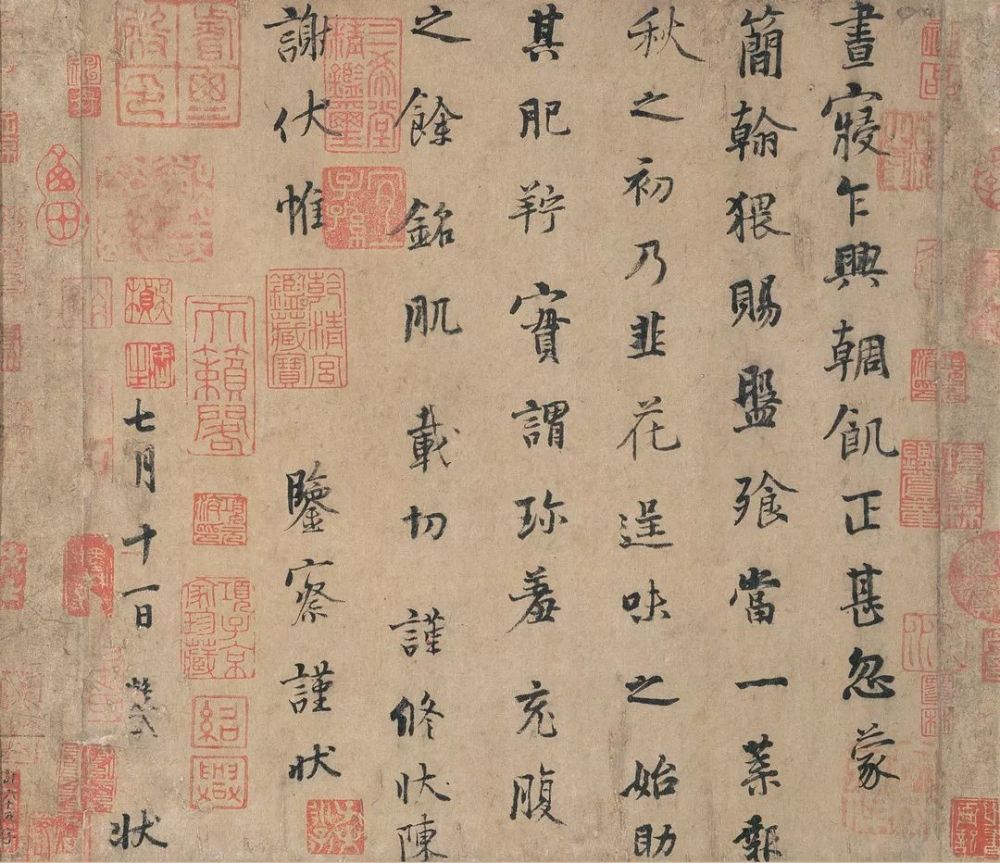 晝寢乍興輖飢正甚忽蒙
簡翰猥賜盤飧當一葉報
秋之初乃韭花逞味之始助
其肥羜實謂珍羞充腹
之餘銘肌載切謹修狀陳
謝伏惟
鑒察謹狀
七月十一日 狀
三希堂精鑑璽
宜子孫
乾清宮鑑藏寶
天籟閣
項子京家珍藏
紹興